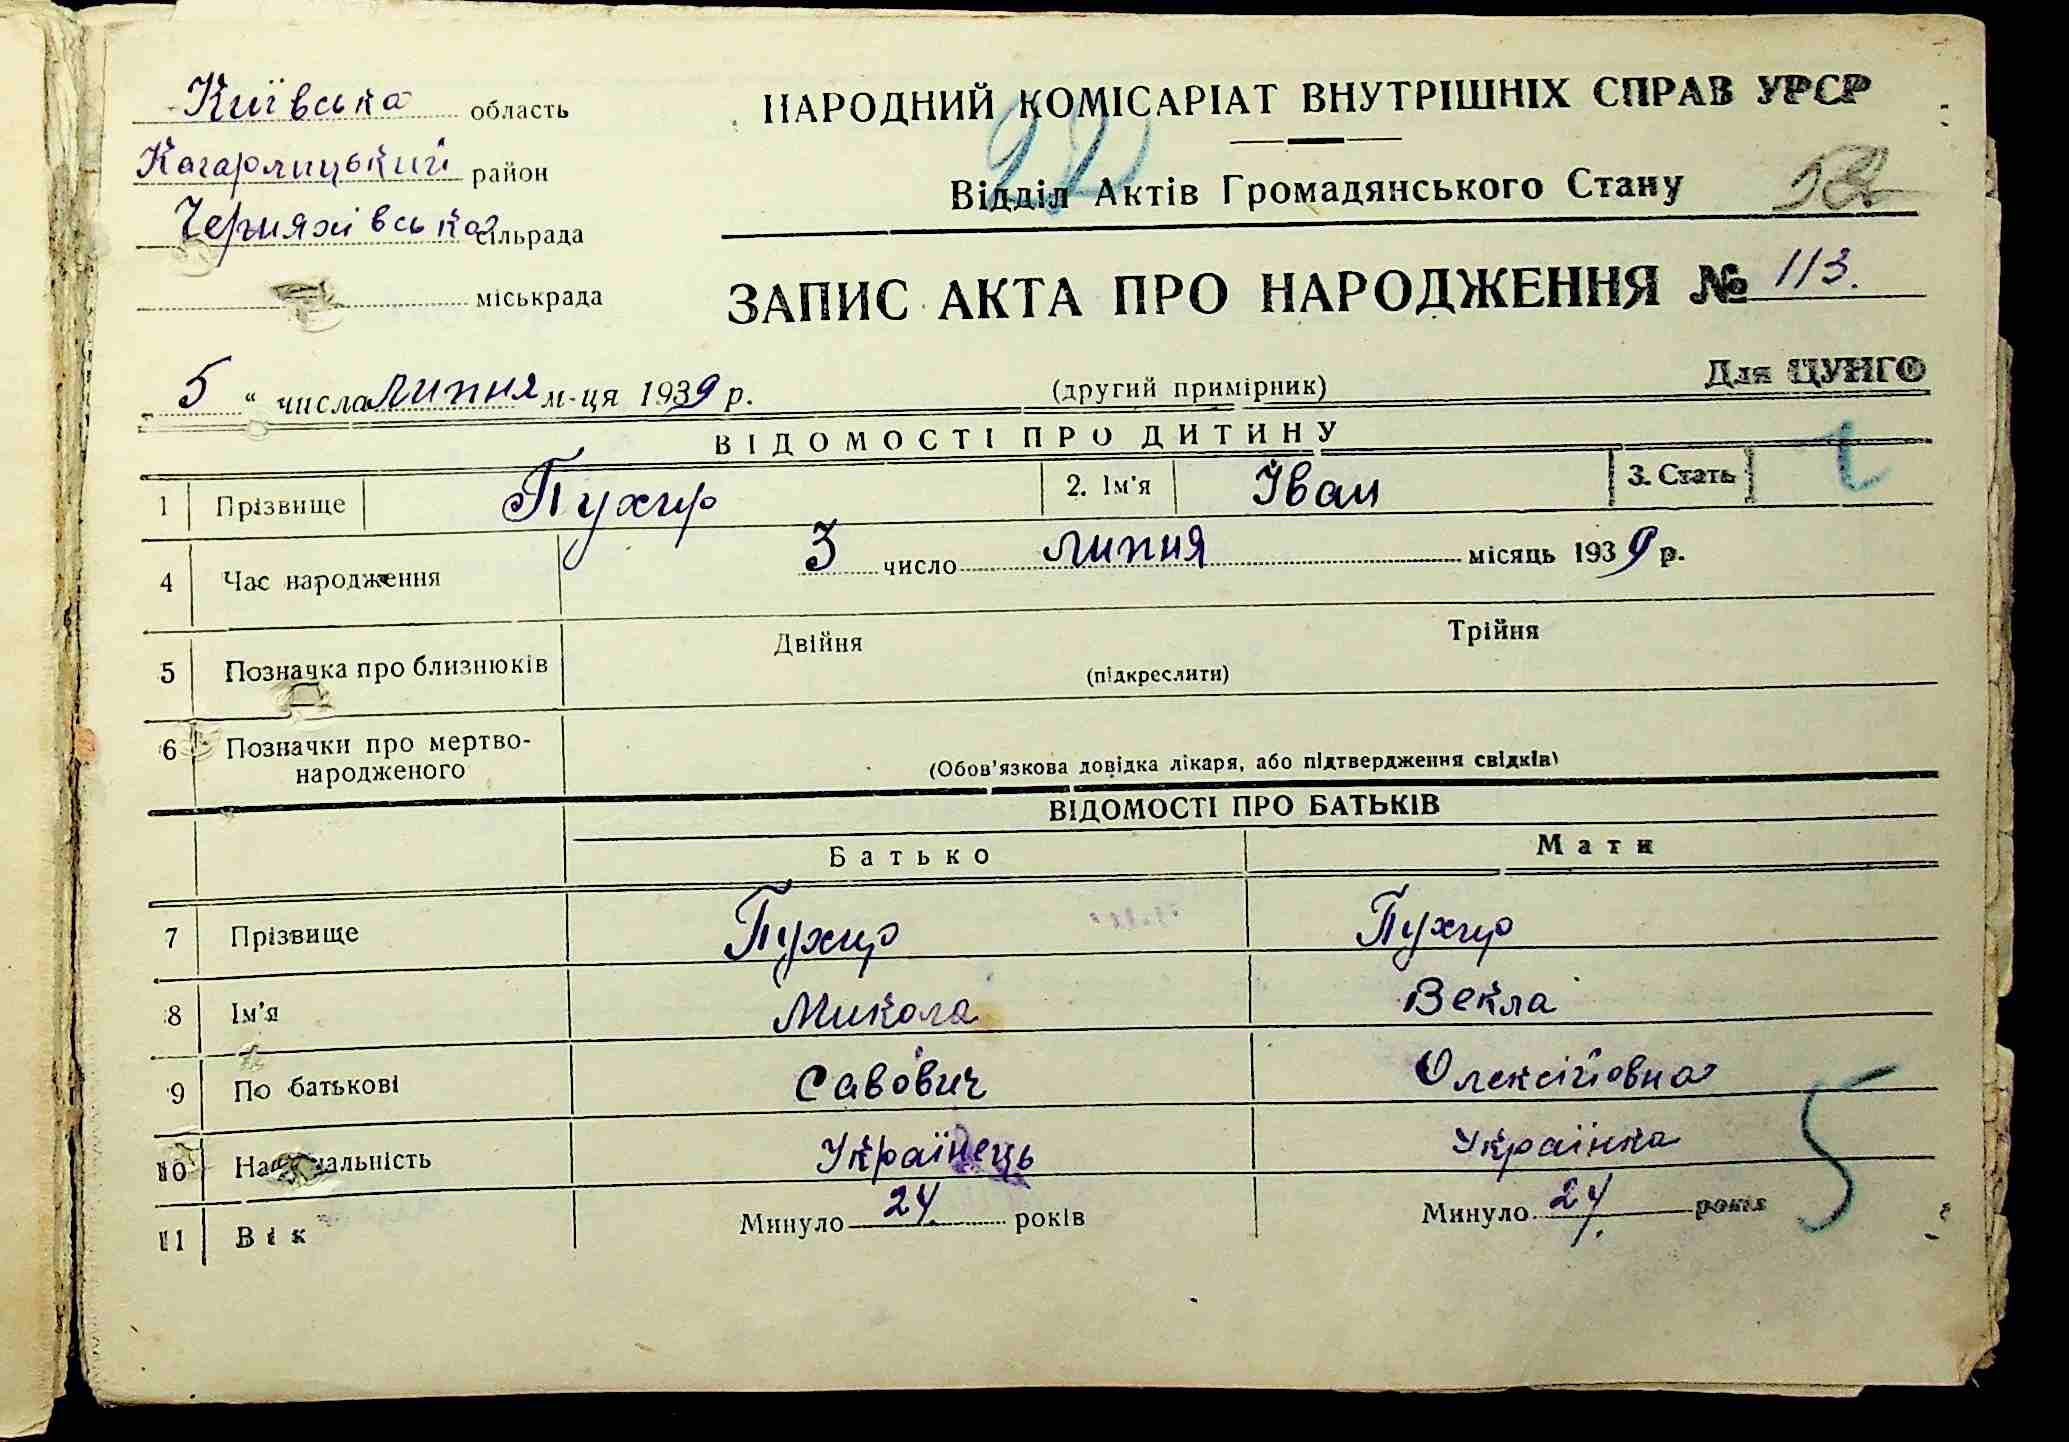 Київська область
Кагарлицький район
Черняхівська сільрада
міськрада
НАРОДНИЙ КОМІСАРІАТ ВНУТРІШНІХ СПРАВ УРСР
Відділ Актів Громадянського Стану
ЗАПИС АКТА ПРО НАРОДЖЕННЯ № 113.
„ 5 “ числа липня м-ця 1939 р.
(другий примірник)
Для ЦУНГО
ВІДОМОСТІ ПРО ДИТИНУ
1 Прізвище Пухир 2. Ім'я Іван 3. Стать
4 Час народження 3 число липня місяць 1939 р.
5 Позначка про близнюків Двійня Трійня
(підкреслити)
6 Позначки про мертво-
народженого
(Обов'язкова довідка лікаря, або підтвердження свідків)
ВІДОМОСТІ ПРО БАТЬКІВ
Батько Мати
7 Прізвище Пухир Пухир
8 Ім'я Микола Векла
9 По батькові Савович Олексіївна
10 Національність Українець Українка
11 Вік Минуло 24 років Минуло 24. років
5